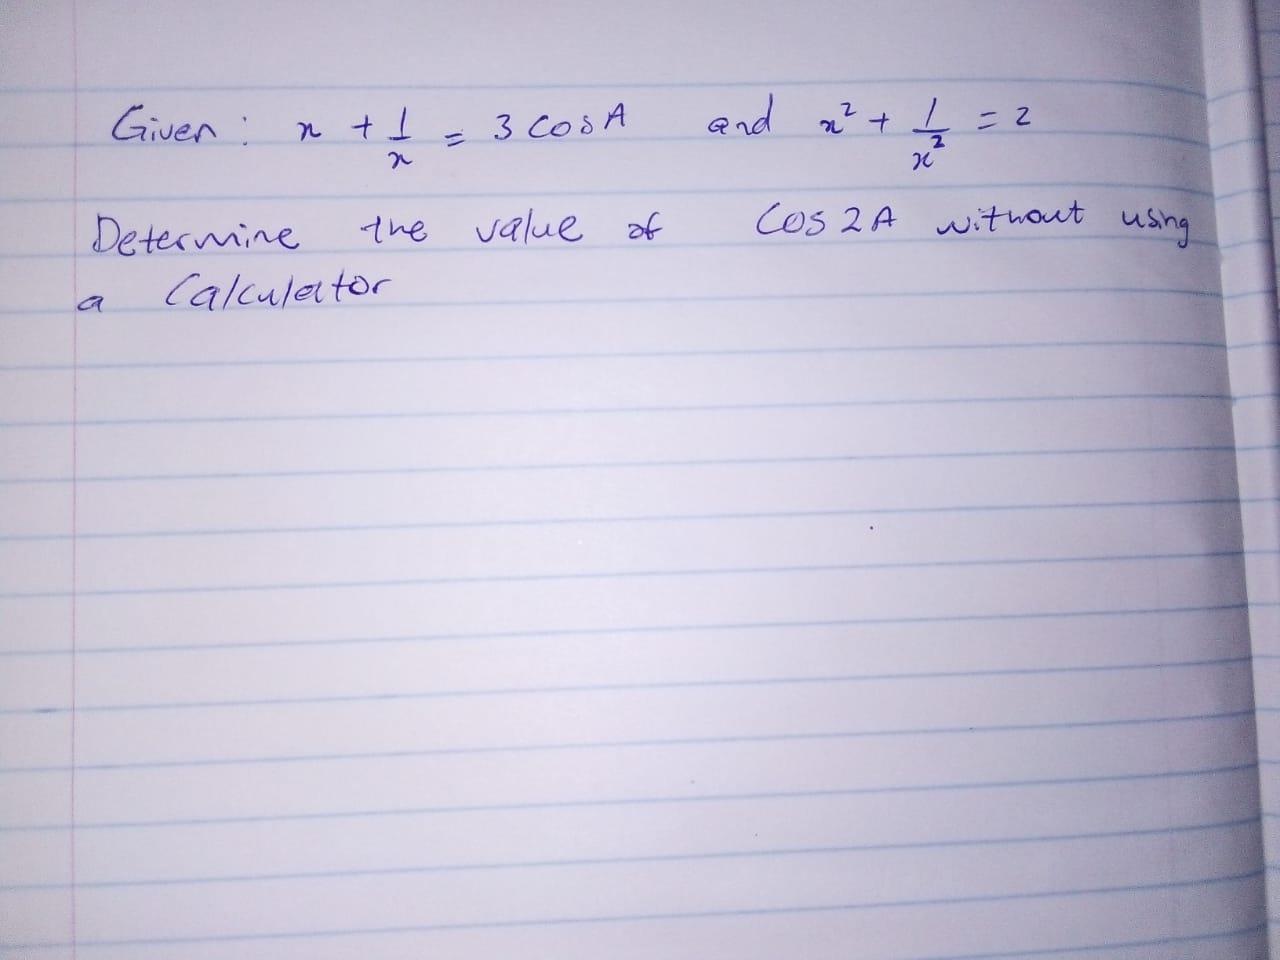 Given: x + 1/x = 3 cos A and x² + 1/x² = 2
Determine the value of Cos 2A without using
a Calculator